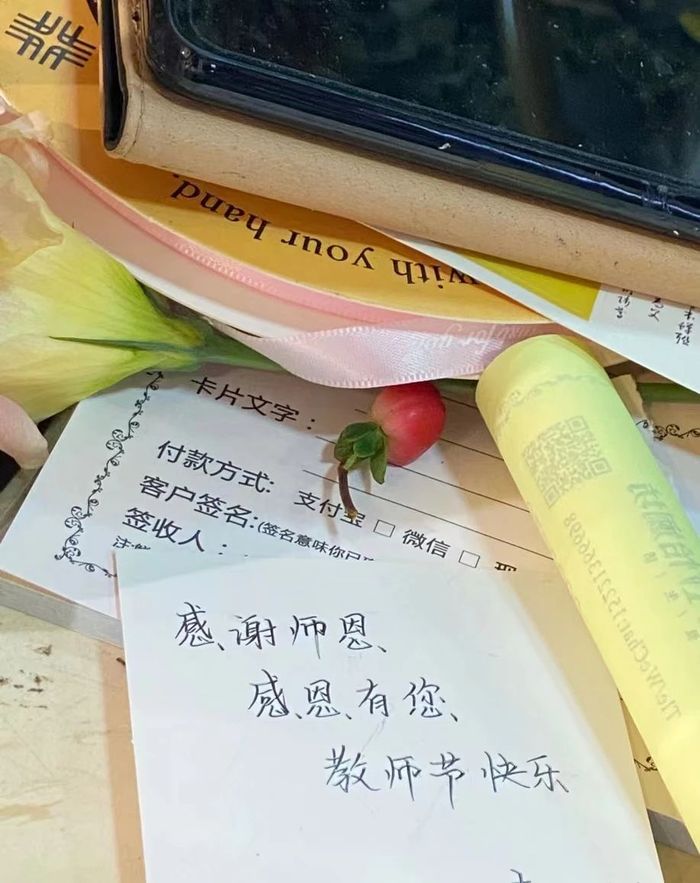 with your hand.
卡片文字：
付款方式: 支付宝 □ 微信 □
客户签名:(签名意味你已
签收人：
感谢师恩、
感恩有您、
教师节快乐
Tle/WeChat:15221366698